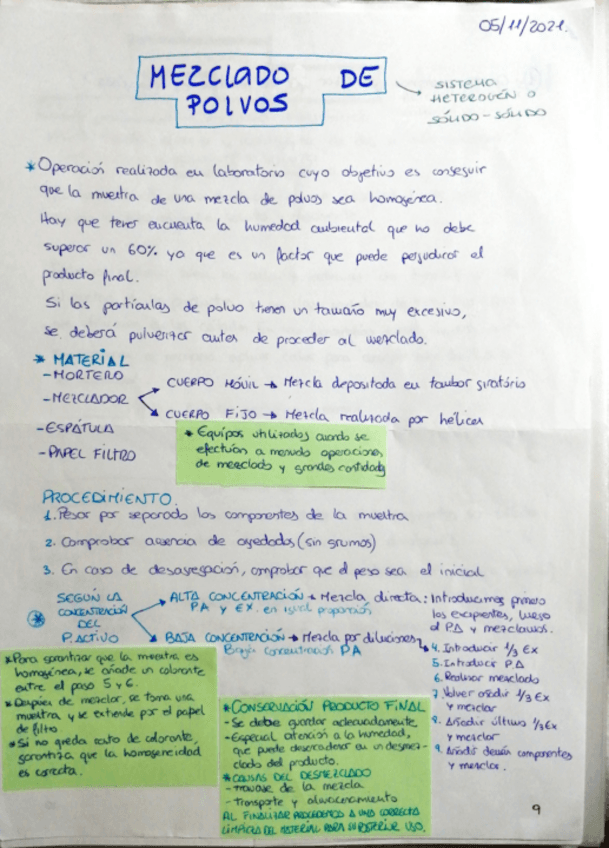 05/11/2021.
MEZCLADO DE
POLVOS
SISTEMA
HETEROGÉNEO
SÓLIDO-SÓLIDO
* Operación realizada en laboratorio cuyo objetivo es conseguir
que la muestra de una mezcla de polvos sea homogénea.
Hay que tener encuenta la humedad ambiental que no debe
superar un 60% ya que es un factor que puede perjudicar el
producto final.
Si las partículas de polvo tienen un tamaño muy excesivo,
se deberá pulverizar antes de proceder al mezclado.
* MATERIAL
-MORTERO
-MEZCLADOR
CUERPO MÓVIL → Mezcla depositada en tambor giratorio
CUERPO FIJO → Mezcla realizada por hélices
-ESPÁTULA
-PAPEL FILTRO
* Equipos utilizados cuando se
efectúan a menudo operaciones
de mezclado y grandes cantidades
PROCEDIMIENTO.
1. Pesar por separado los componentes de la muestra
2. Comprobar ausencia de agregados (sin grumos)
3. En caso de desagregación, comprobar que el peso sea el inicial
* SEGÚN LA
CONCENTRACIÓN
DEL
P.ACTIVO
ALTA CONCENTRACIÓN → Mezcla directa: Introducimos primero
PA y EX. en igual proporción
los excipientes, luego
el PA y mezclamos.
BAJA CONCENTRACIÓN → Mezcla por diluciones
Baja concentración PA
4. Introducir 1/3 EX
5. Introducir PA
6. Realizar mezclado
7. Volver añadir 1/3 EX
y mezclar
8. Añadir último 1/3 EX
y mezclar
9. Añadir demás componentes
y mezclar.
* Para garantizar que la muestra es
homogénea, se añade un colorante
entre el paso 5 y 6.
* Después de mezclar, se toma una
muestra y se extiende por el papel
de filtro
* Si no queda rastro de colorante,
garantiza que la homogeneidad
es correcta.
* CONSERVACIÓN PRODUCTO FINAL
- Se debe guardar adecuadamente
- Especial atención a la humedad,
que puede desencadenar en un desmez-
clado del producto.
* CAUSAS DEL DESMEZCLADO
- Trasvase de la mezcla
- Transporte y almacenamiento
AL FINALIZAR PROCEDEMOS A UNA CORRECTA
LIMPIEZA DEL MATERIAL PARA SU POSTERIOR USO.
9